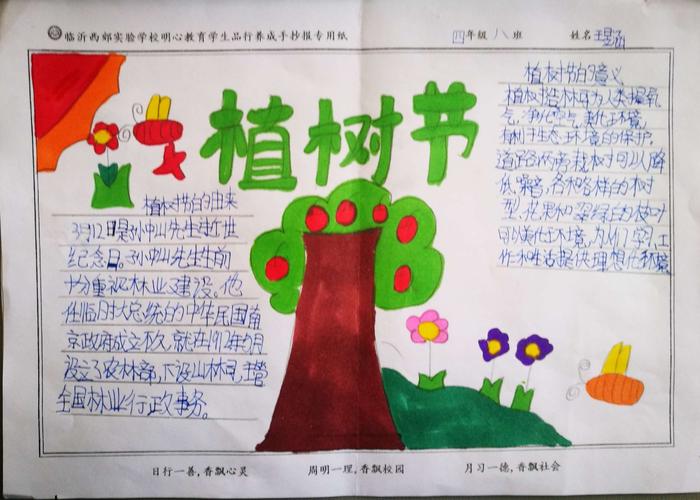 临沂西郊实验学校明心教育学生品行养成手抄报专用纸 四年级 八班 姓名
植树节
植树节的由来
3月12日是孙中山先生逝世
纪念日。孙中山先生生前
十分重视林业建设。他
任临时大总统的中华民国南
京政府成立不久，就在1912年5月
设立了农林部，下设山林司，主管
全国林业行政事务。
植树节的意义
植树造林可为人类提氧
气，净化空气，美化环境，
有利于生态环境的保护，
道路两旁栽树可以降
低噪音，各种各样的树
型，花果和翠绿的枝叶
可以美化环境，为人们学习，工
作和生活提供理想化环境
日行一善，香飘心灵 周明一理，香飘校园 月习一德，香飘社会